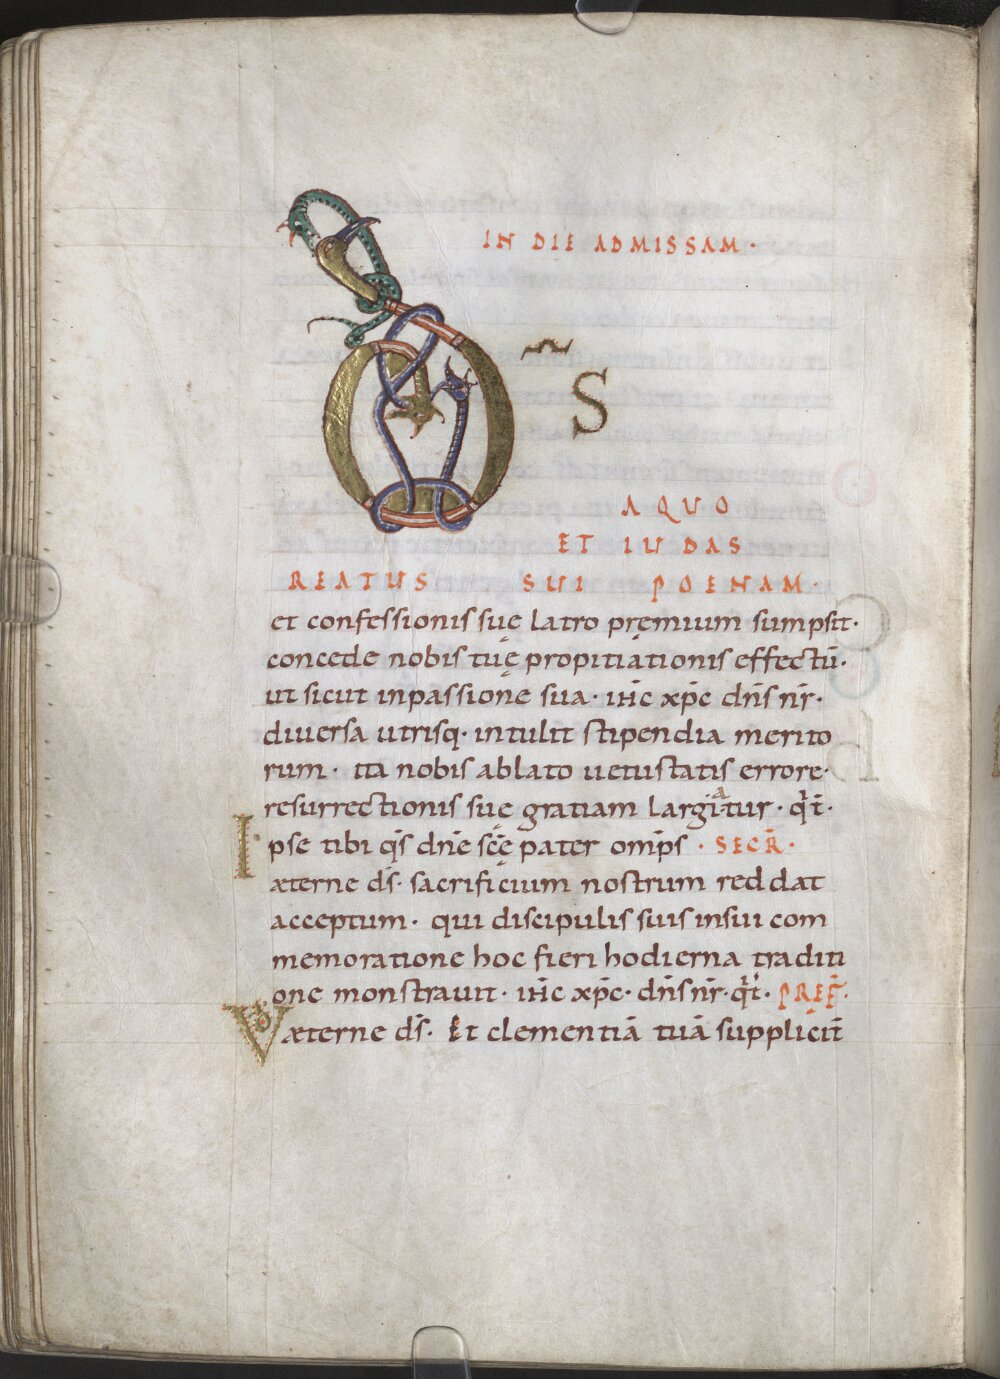 IN DIE AD MISSAM ·
D̅S
A QUO
ET IUDAS
REATUS SUI POENAM ·
et confessionis suę latro pręmium sumpsit ·
concede nobis tuę propitiationis effectū ·
ut sicut inpassione sua · ih̅c xp̅c dn̅s nr̅ ·
diuersa utrisq · intulit stipendia merito
rum · ita nobis ablato uetustatis errore ·
resurrectionis suę gratiam largiatur · q̅t̅ ·
Ipse tibi q̅s dn̅e sc̅ę pater omp̅s · SECR̅ ·
æterne d̅s · sacrificium nostrum reddat
acceptum · qui discipulis suis insui com
memoratione hoc fieri hodierna traditi
one monstrauit · ih̅c xp̅c · dn̅s nr̅ · q̅t̅ · PREF̅ ·
VD æterne d̅s · Et clementiā tuā suppliciт̅